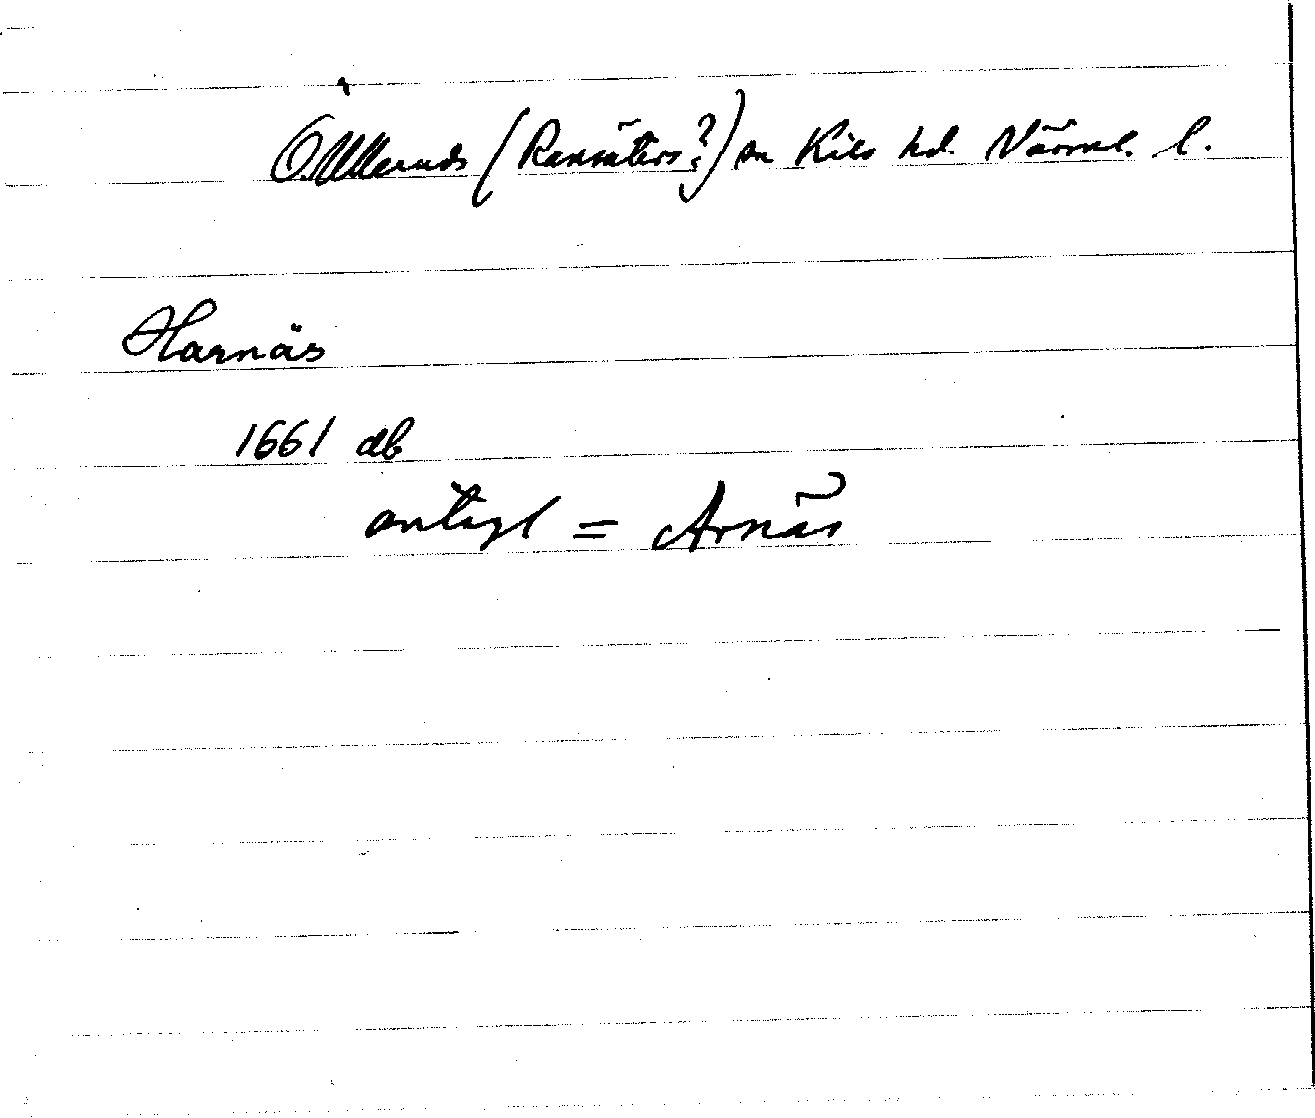 Ö. Ulleruds (Ransäters?) sn Kils hd. Värml. l.
Harnäs
1661 db
antagl = Arnäs